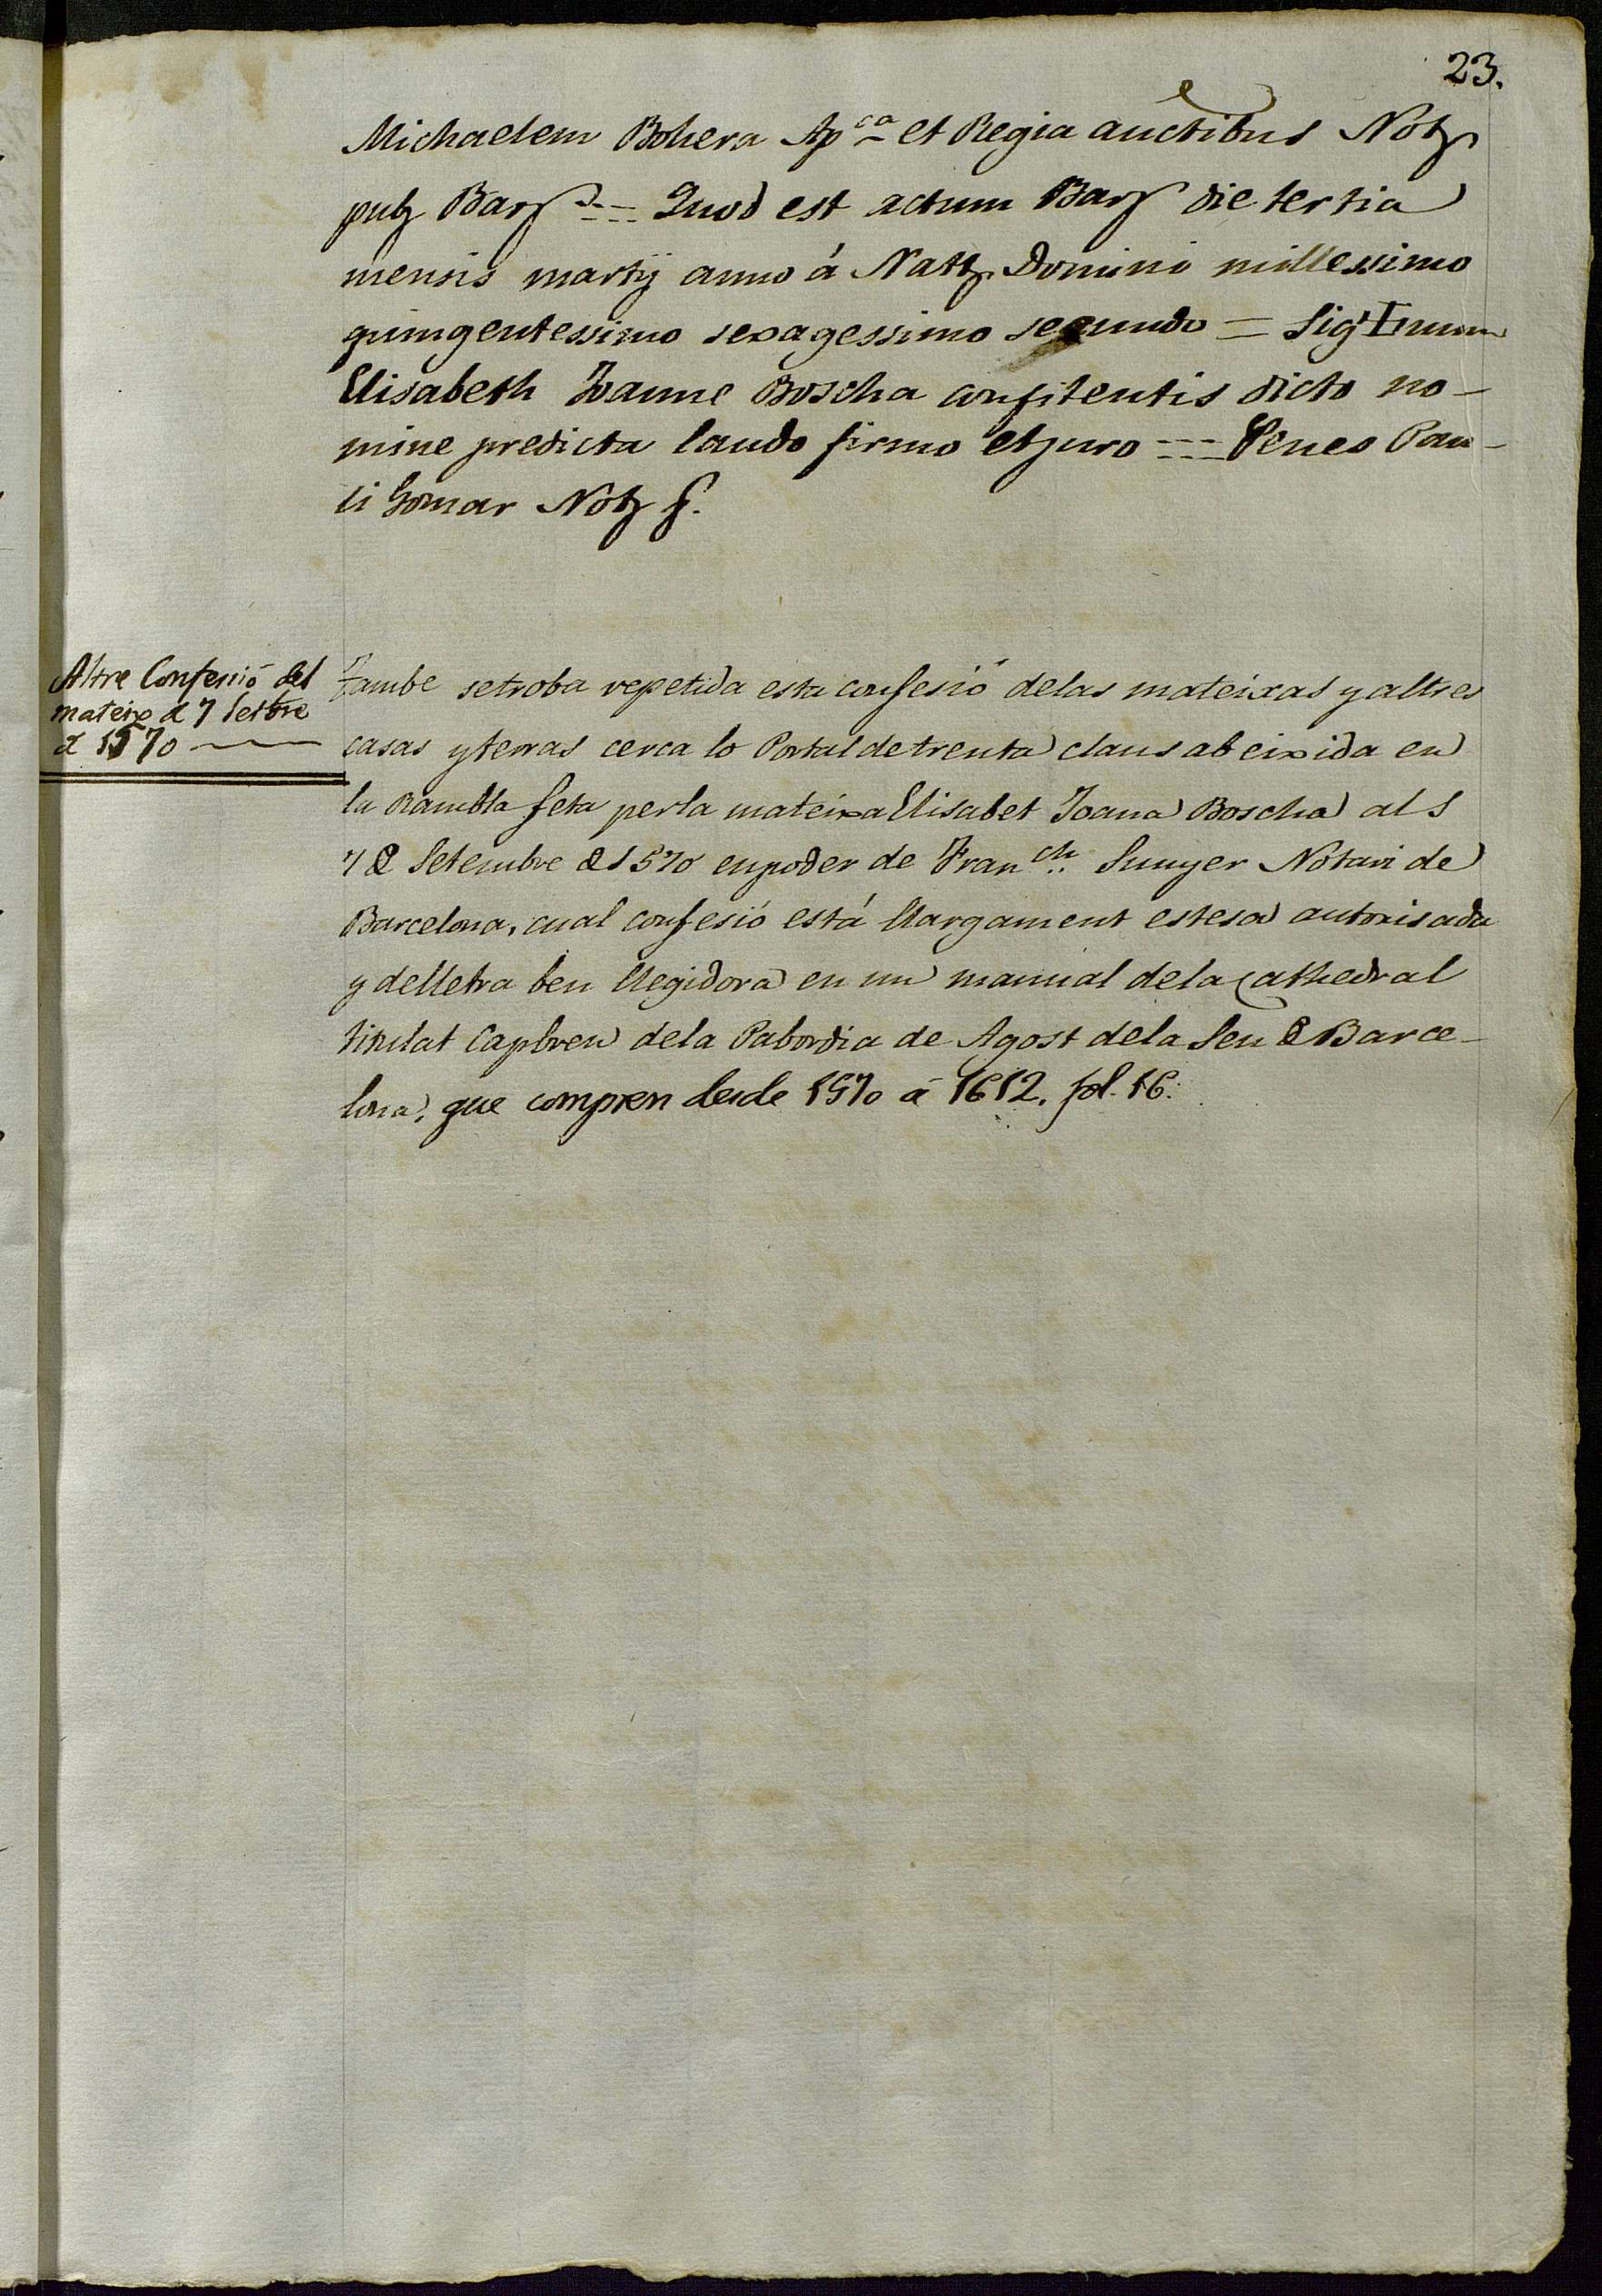 23.
Michaelem Bohera Ap.ca et Regia auctibus Notz
pubz Barz --- Quod est actum Barz die tertia
mensis martij anno á Natz. Domini millessimo
quimgentessimo sexagessimo secundo = Sig+num
Elisabeth Joanne Boscha confitentis dicto no-
mine predicta laudo firmo et juro --- Penes Pau-
li Gomar Notz
Altre Confessió del
mateix d 7 Setbre
d 1570
Tambe setroba repetida esta confesió delas mateixas y altres
casas y terras cerca lo Portal de trenta claus ab eixida en
la Rambla feta per la mateixa Elisabet Joana Boscha als
7 d Setembre d 1570 en poder de Fran.ch Sunyer Notari de
Barcelona, cual confesió está llargament estesa autorisada
y de lletra ben llegidora en un manual de la Cathedral
titulat Capbreu dela Pabordia de Agost dela Seu d Barce-
lona, que compren desde 1570 á 1612. fol. 16.